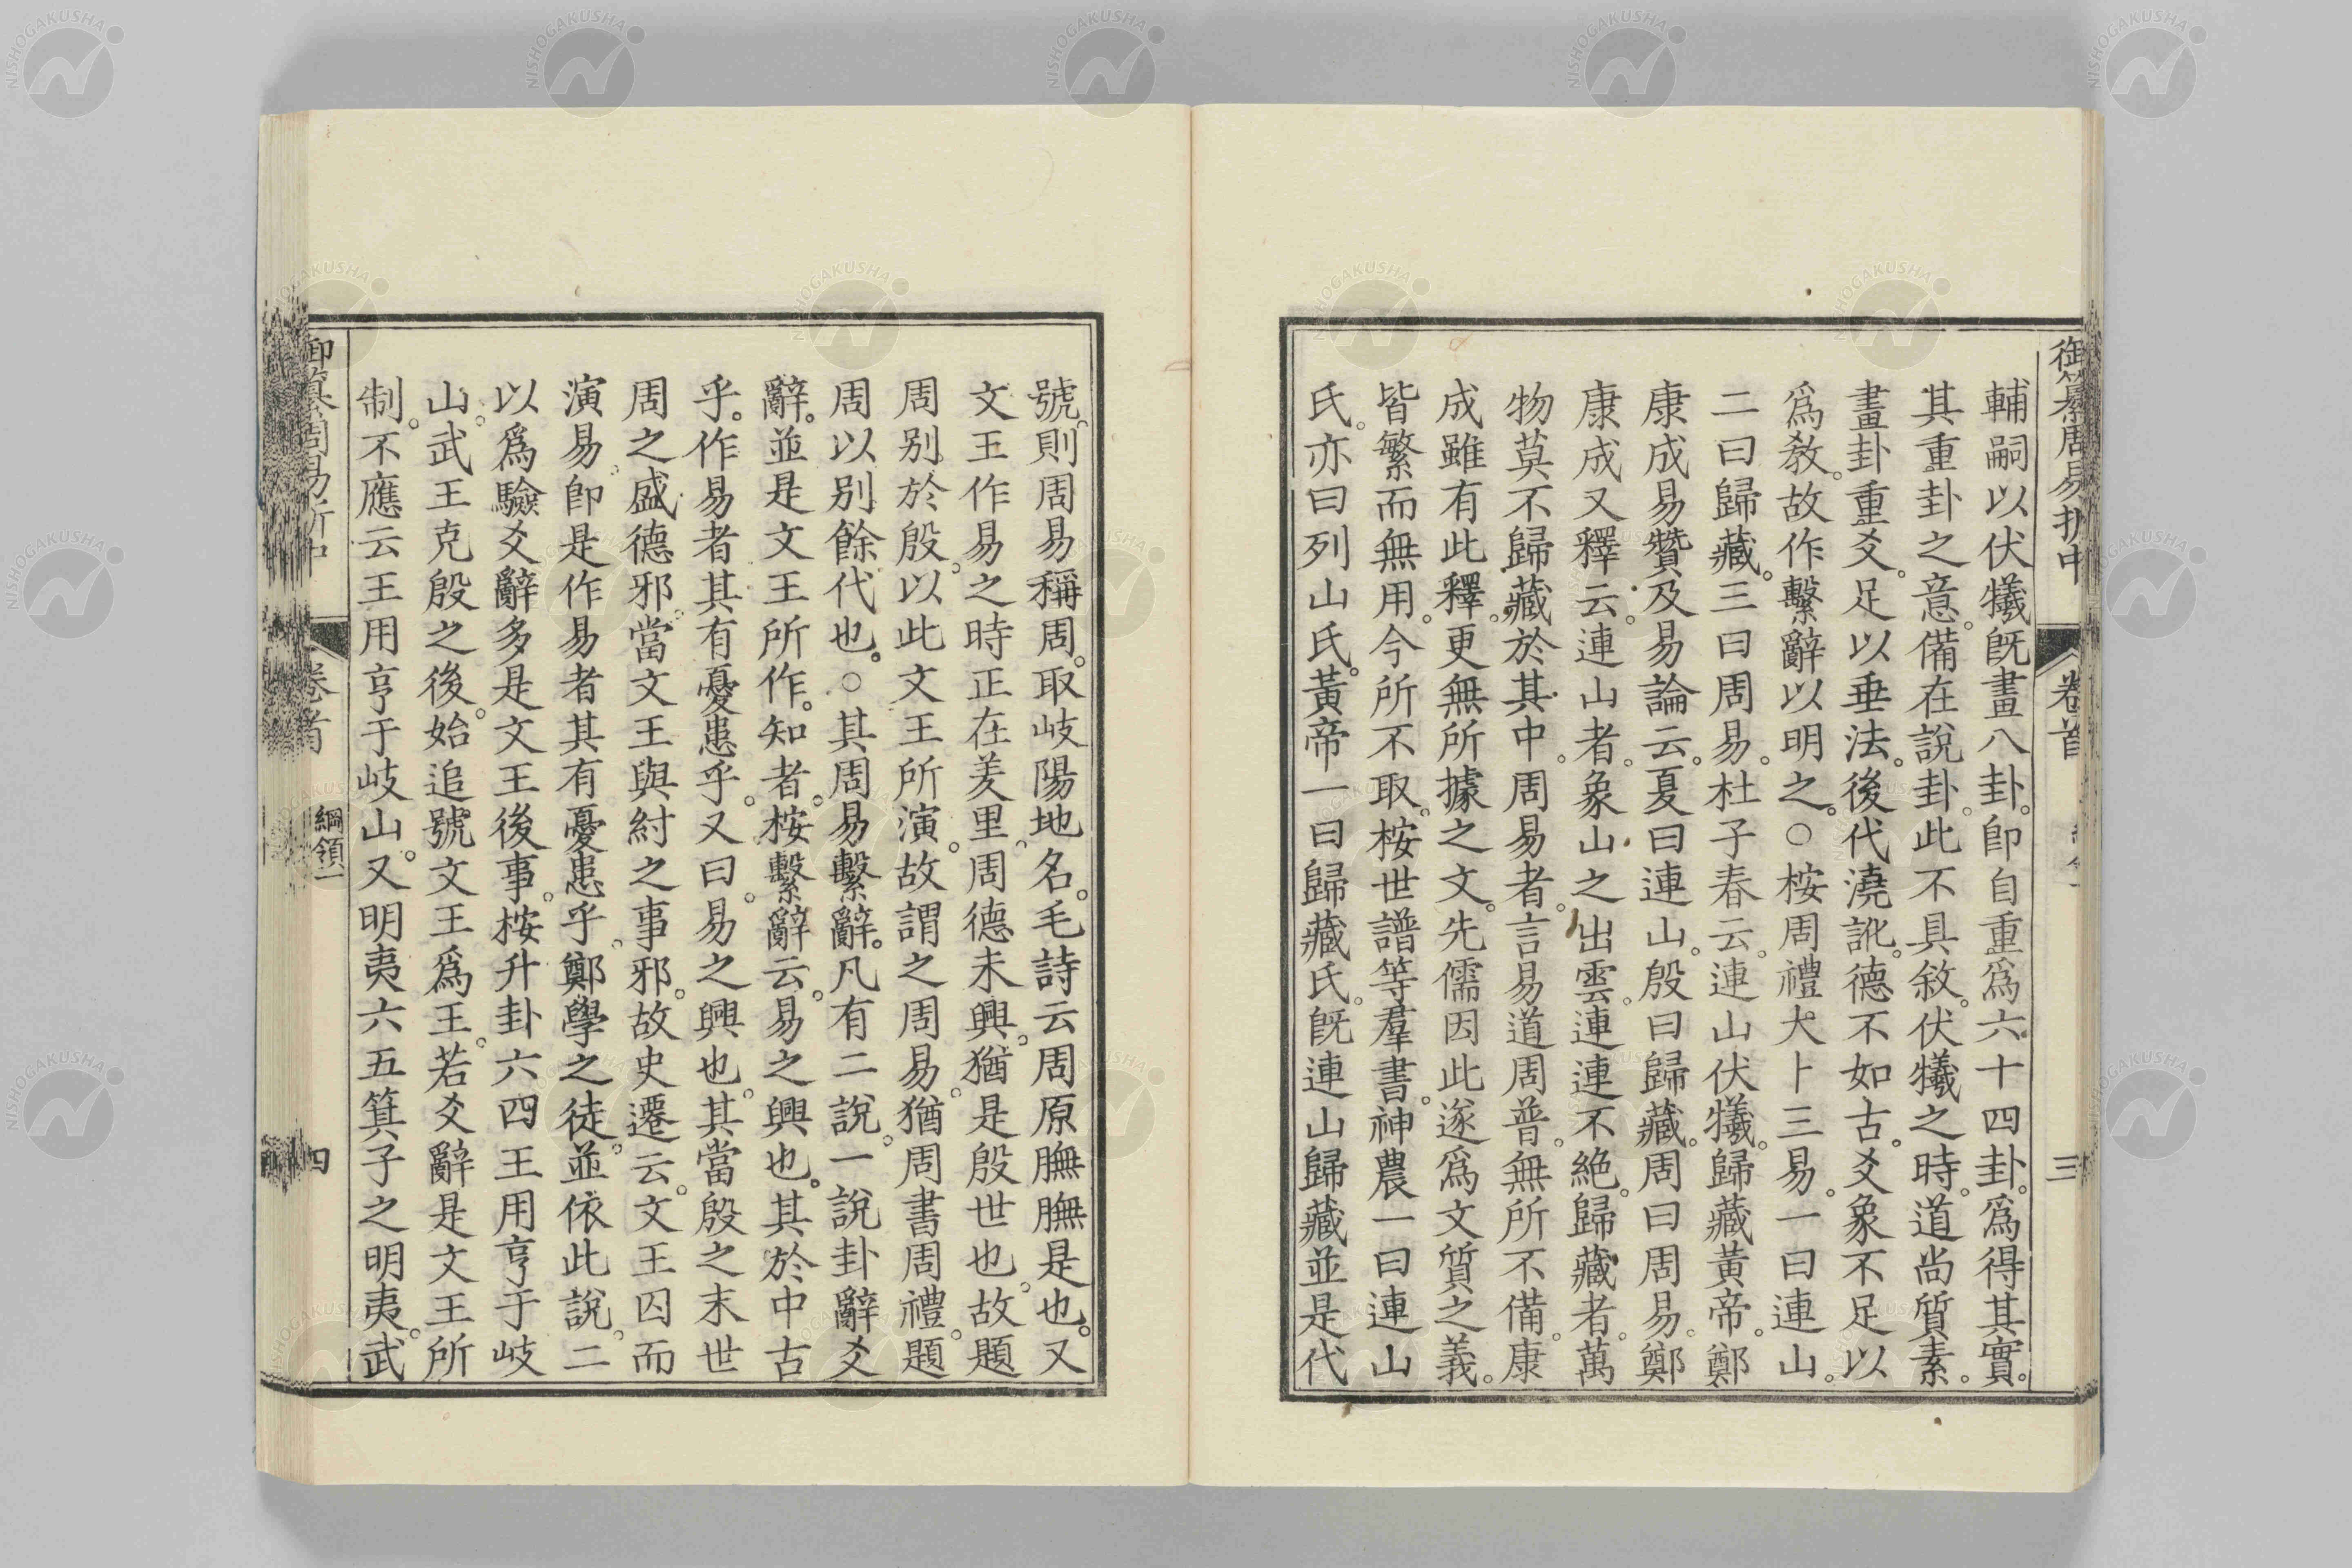 御纂周易折中 卷首 三
輔嗣以伏犧旣畫八卦。卽自重爲六十四卦。爲得其實。
其重卦之意。備在說卦。此不具敘。伏犧之時。道尚質素。
畫卦重爻。足以垂法。後代澆訛。德不如古。爻象不足以
爲教。故作繫辭以明之。○桉周禮大卜三易。一曰連山。
二曰歸藏。三曰周易。杜子春云。連山伏犧。歸藏黃帝。鄭
康成易贊及易論云。夏曰連山。殷曰歸藏。周曰周易。鄭
康成又釋云。連山者。象山之出雲。連連不絕。歸藏者。萬
物莫不歸藏於其中。周易者。言易道周普。無所不備。康
成雖有此釋。更無所據之文。先儒因此遂爲文質之義。
皆繁而無用。今所不取。桉世譜等羣書。神農一曰連山
氏。亦曰列山氏。黃帝一曰歸藏氏。旣連山歸藏並是代
號。則周易稱周。取岐陽地名。毛詩云周原膴膴是也。又
文王作易之時正在羑里。周德未興。猶是殷世也。故題
周别於殷。以此文王所演。故謂之周易。猶周書周禮。題
周以别餘代也。○其周易繫辭。凡有二說。一說卦辭爻
辭。並是文王所作。知者。桉繫辭云。易之興也。其於中古
乎。作易者其有憂患乎。又曰。易之興也。其當殷之末世
周之盛德邪。當文王與紂之事邪。故史遷云。文王囚而
演易。卽是作易者其有憂患乎。鄭學之徒。並依此說。二
以爲驗爻辭多是文王後事。桉升卦六四王用亨于岐
山。武王克殷之後。始追號文王爲王。若爻辭是文王所
制。不應云王用亨于岐山。又明夷六五箕子之明夷。武
御纂周易折中 卷首 綱領一 四
NISHOGAKUSHA